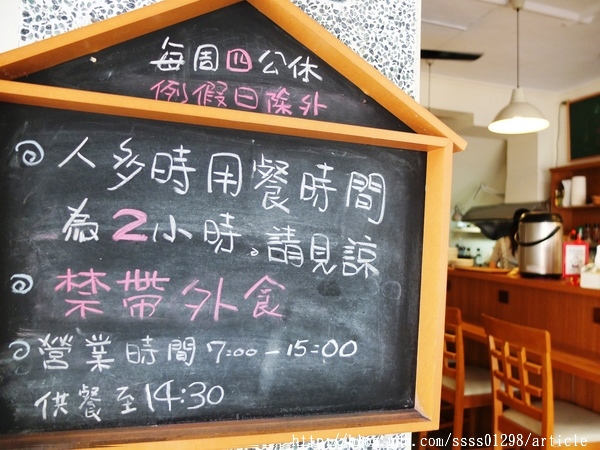 每周四公休
例假日除外
人多時用餐時間
為2小時。請見諒
禁帶外食
營業時間 7:00-15:00
供餐至14:30